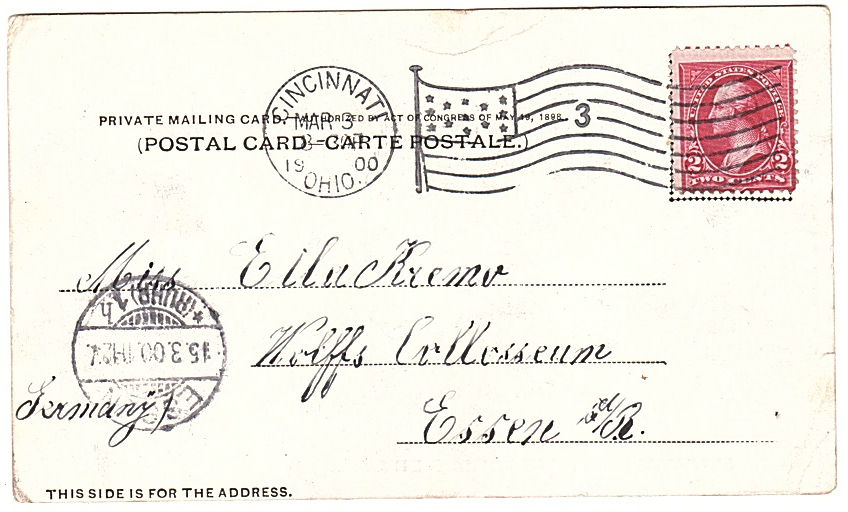 CINCINNATI
MAR 3
19 00
OHIO.
3
UNITED STATES POSTAGE
2 2
TWO CENTS
PRIVATE MAILING CARD. AUTHORIZED BY ACT OF CONGRESS OF MAY 19, 1898.
(POSTAL CARD–CARTE POSTALE.)
Miss Ella Kremo
Wolffs Collosseum
Essen a/R.
Germany
(RUHR) 1 h
15.3.00.
ES
THIS SIDE IS FOR THE ADDRESS.